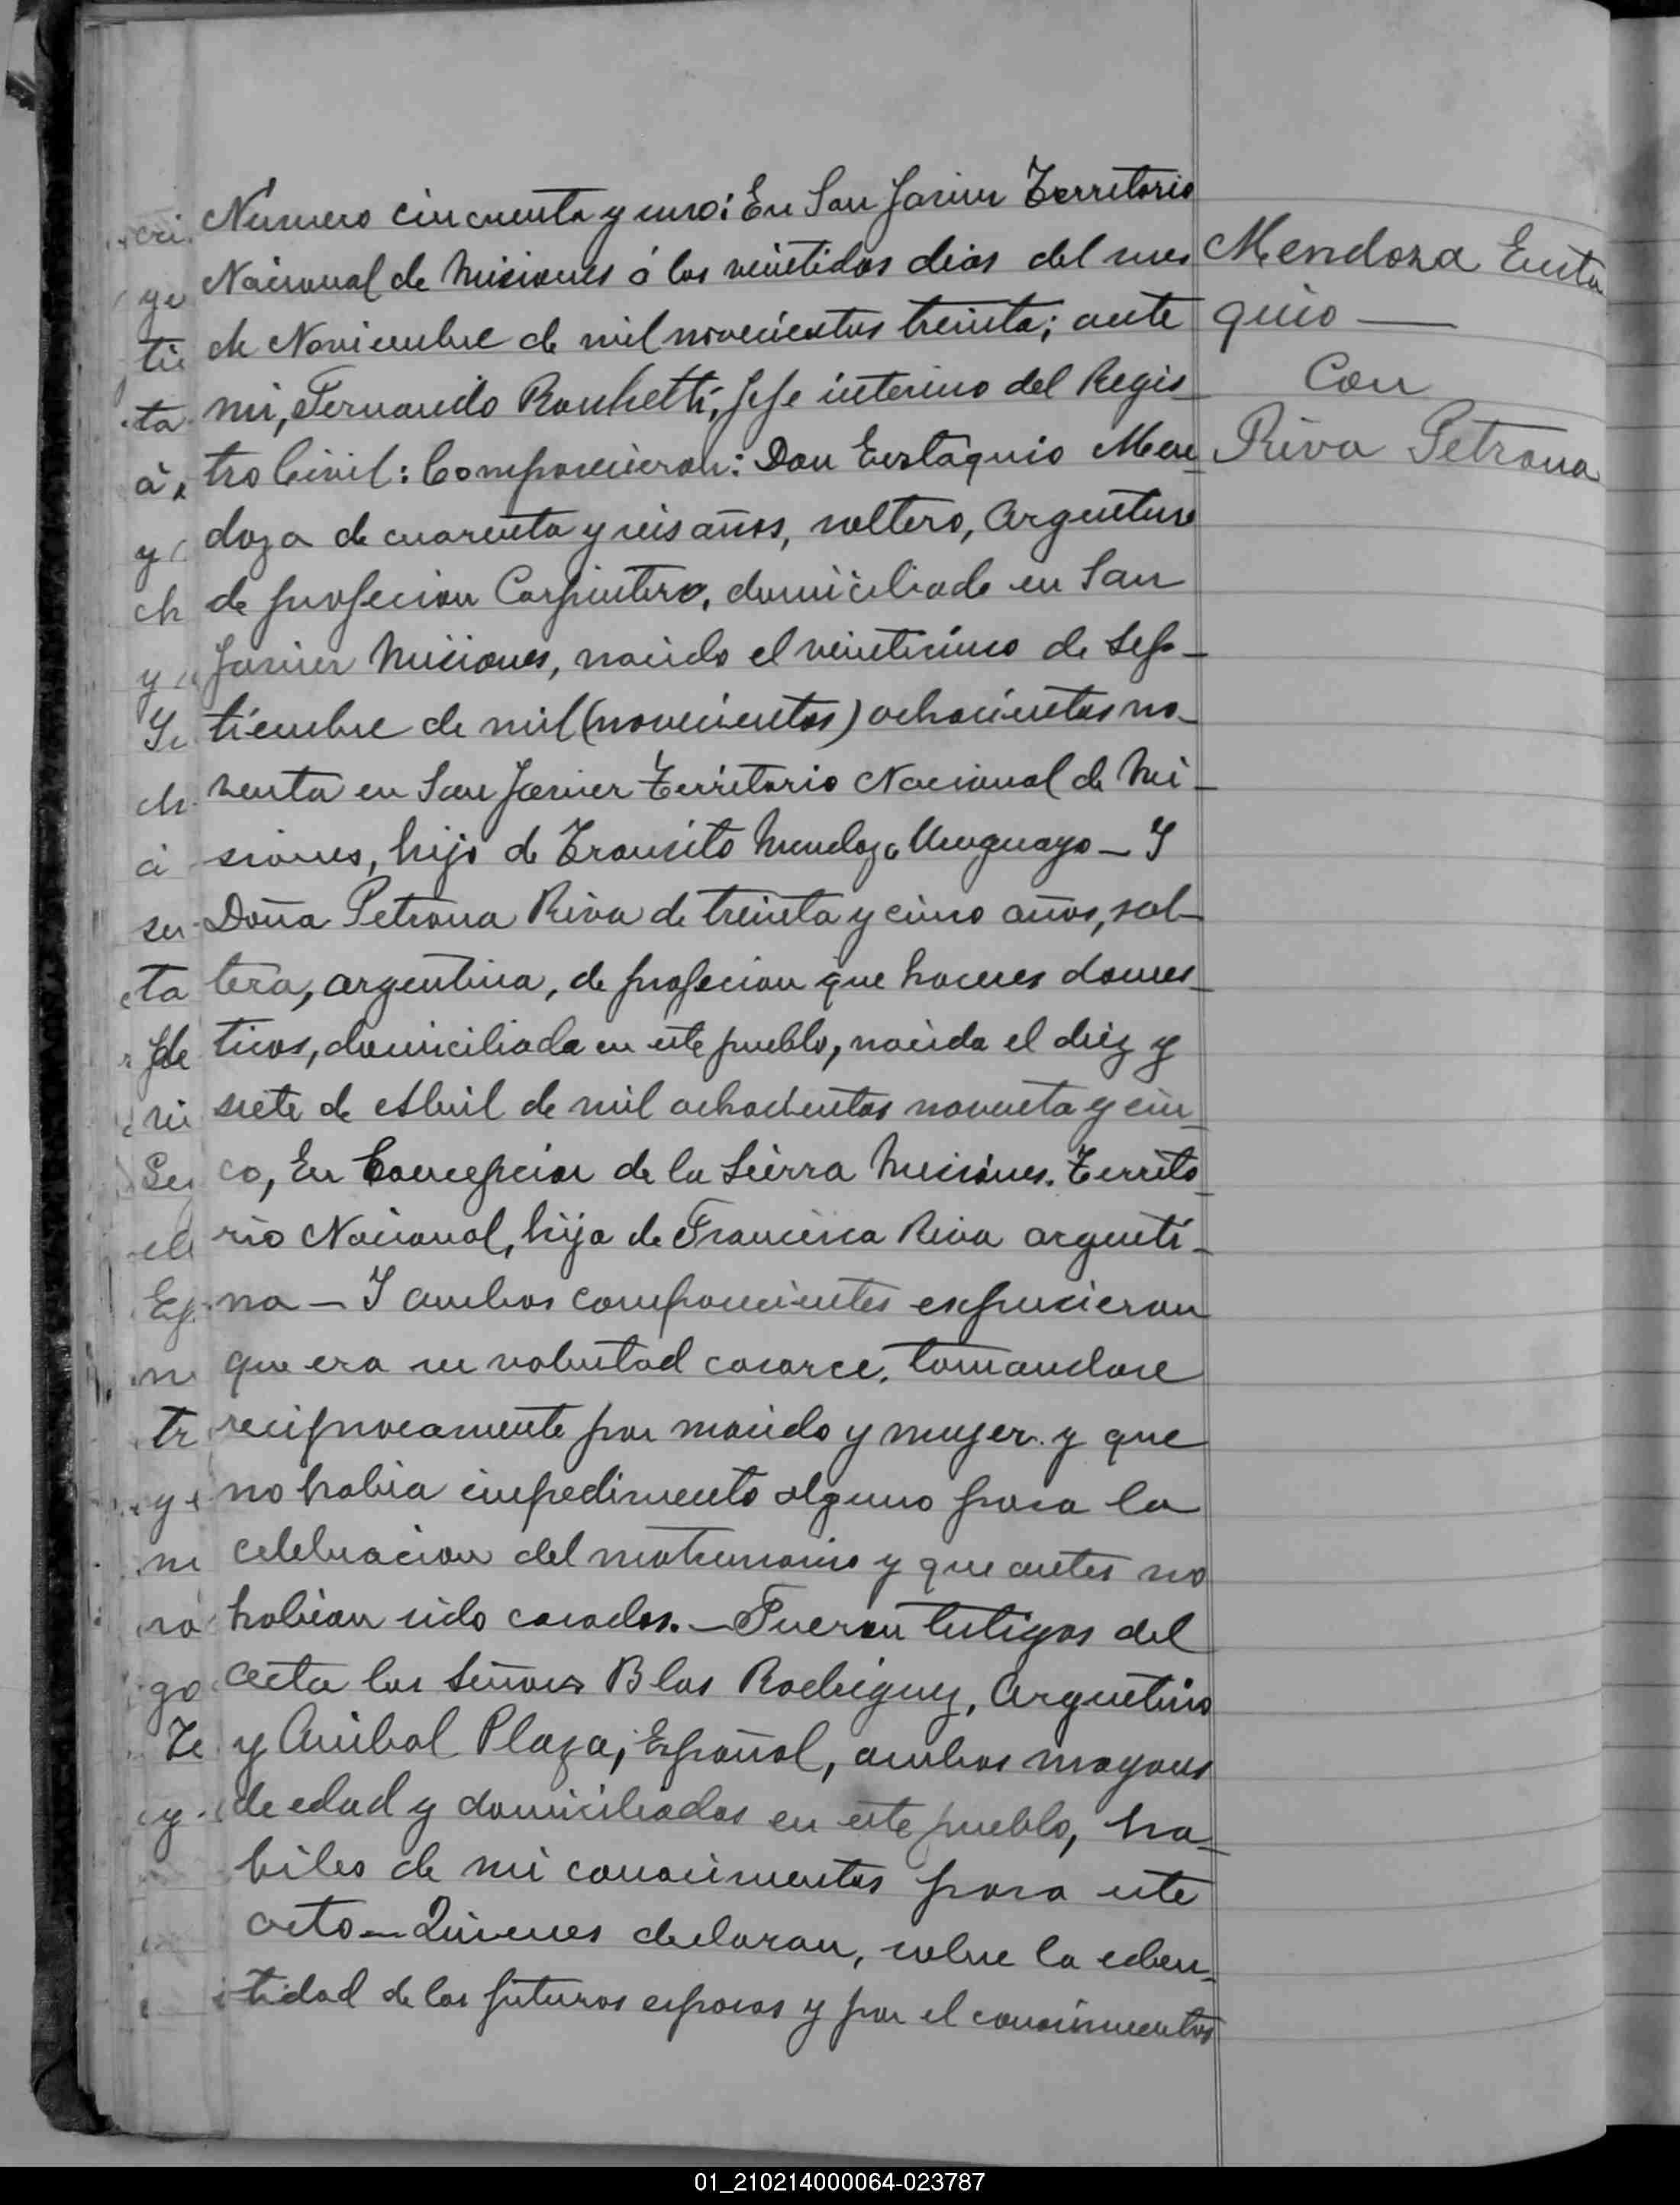 Número cincuenta y uno: En San Javier Territorio
Nacional de Misiones á los veintidos dias del mes
de Noviembre de mil novecientos treinta; ante
mi, Fernando Ronchetti, Jefe interino del Regis-
tro Civil: Comparecieron: Don Eustaquio Men-
doza de cuarenta y seis años, soltero, Argentino
de profecion Carpintero, domiciliado en San
Javier Misiones, nacido el veinticinco de Sep-
tiembre de mil (novecientos) ochocientos no-
venta en San Javier Territorio Nacional de Mi-
siones, hijo de Transito Mendoza Uruguayo — Y
Doña Petrona Riva de treinta y cinco años, sol-
tera, argentina, de profecion que haceres domes-
ticos, domiciliada en este pueblo, nacida el diez y
siete de Abril de mil ochocientos noventa y cin-
co, En Concepcion de la Sierra Misiones. Territo-
rio Nacional, hija de Francisca Riva argenti-
na — Y ambos comparecientes expucieron
que era su voluntad casarce, tomandose
reciprocamente por marido y mujer. y que
no habia impedimento alguno para la
celebracion del matrimonio y que antes no
habian sido casados. — Fueron testigos del
acta los Señores Blas Rodriguez, Argentino
y Anibal Plaza, Español, ambos mayores
de edad y domiciliados en este pueblo, ha-
biles de mi conocimentos para este
acto — Quienes declaran, sobre la eden-
tidad de los futuros esposos y por el conocimentos
Mendoza Eusta
quio —
Con
Riva Petrona
cri
ye
tie
ta
à
y
ch
y
Se
ch
a
su
cta
de
ri
Se
ele
Ep
n
tr
y
m
ra
go
Te
y
01_210214000064-023787